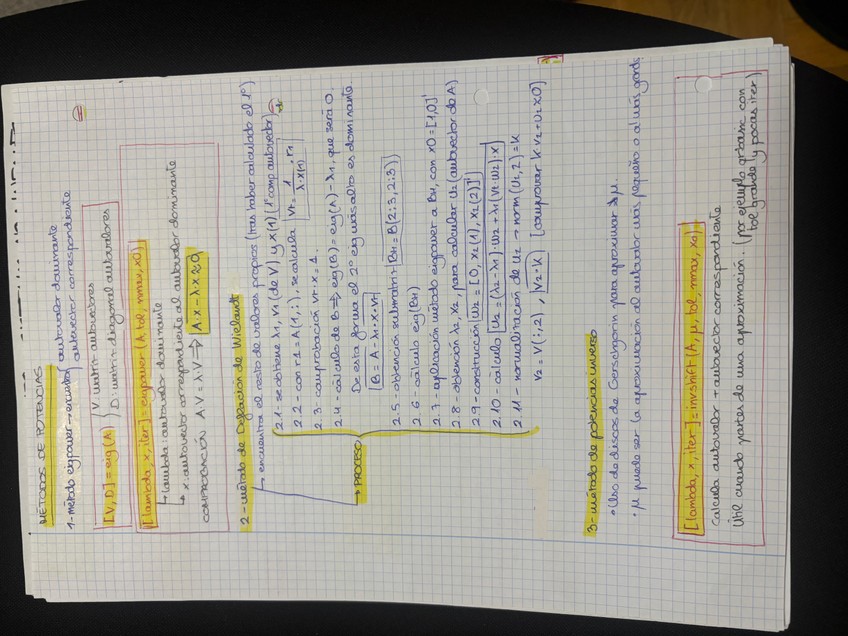 MÉTODOS DE POTENCIAS
1-método eigpower → encontrar autovalor dominante
autovector correspondiente
[V, D] = eig(A) V: matriz autovectores
D: matriz diagonal autovalores
[lambda, x, iter] = eigpower (A, tol, nmax, x0)
↳ lambda: autovalor dominante
↳ x: autovector correspondiente al autovalor dominante
COMPROBACIÓN A·V = λ·V ⇒ A·x - λ·x ≈ 0
2-método de Deflación de Wielandt
↳ encuentra el resto de valores propios (tras haber calculado el 1º)
2.1- se obtiene λ1, v1 (de V) y x(1) (1ª comp autovector)
2.2- con r1 = A(1,:), se calcula vr = 1/λ·x(1) · r1
2.3- comprobación vr·x = 1.
2.4- cálculo de B ⇒ eig(B) = eig(A) - λ1, que será 0
De esta forma el 2º eig más alto es dominante.
→ PROCESO
B = A - λ1·x·vr
2.5- obtención submatriz B11 = B(2:3, 2:3)
2.6- cálculo eig(B11)
2.7- aplicación método eigpower a B11, con x0 = [1,0]'
2.8- obtención λ2, x2, para calcular u2 (autovector de A)
2.9- construcción w2 = [0, x2(1), x2(2)]'
2.10- cálculo u2 = (λ2-λ1)·w2 + λ1(vr·w2)·x
2.11- normalización de u2 → norm(u2,2) = k
v2 = V(:,2), v2·k [comprovar k·v2 - u2 ≈ 0]
3-método de potencias inverso
• Uso de discos de Gerschgorin para aproximar μ.
• μ puede ser la aproximación al autovalor más pequeño o al más grande
[lambda, x, iter] = invshift (A, μ, tol, nmax, x0)
Calcula autovalor + autovector correspondiente
Útil cuando partes de una aproximación. (por ejemplo gráfica con
tol grande y pocas iter)